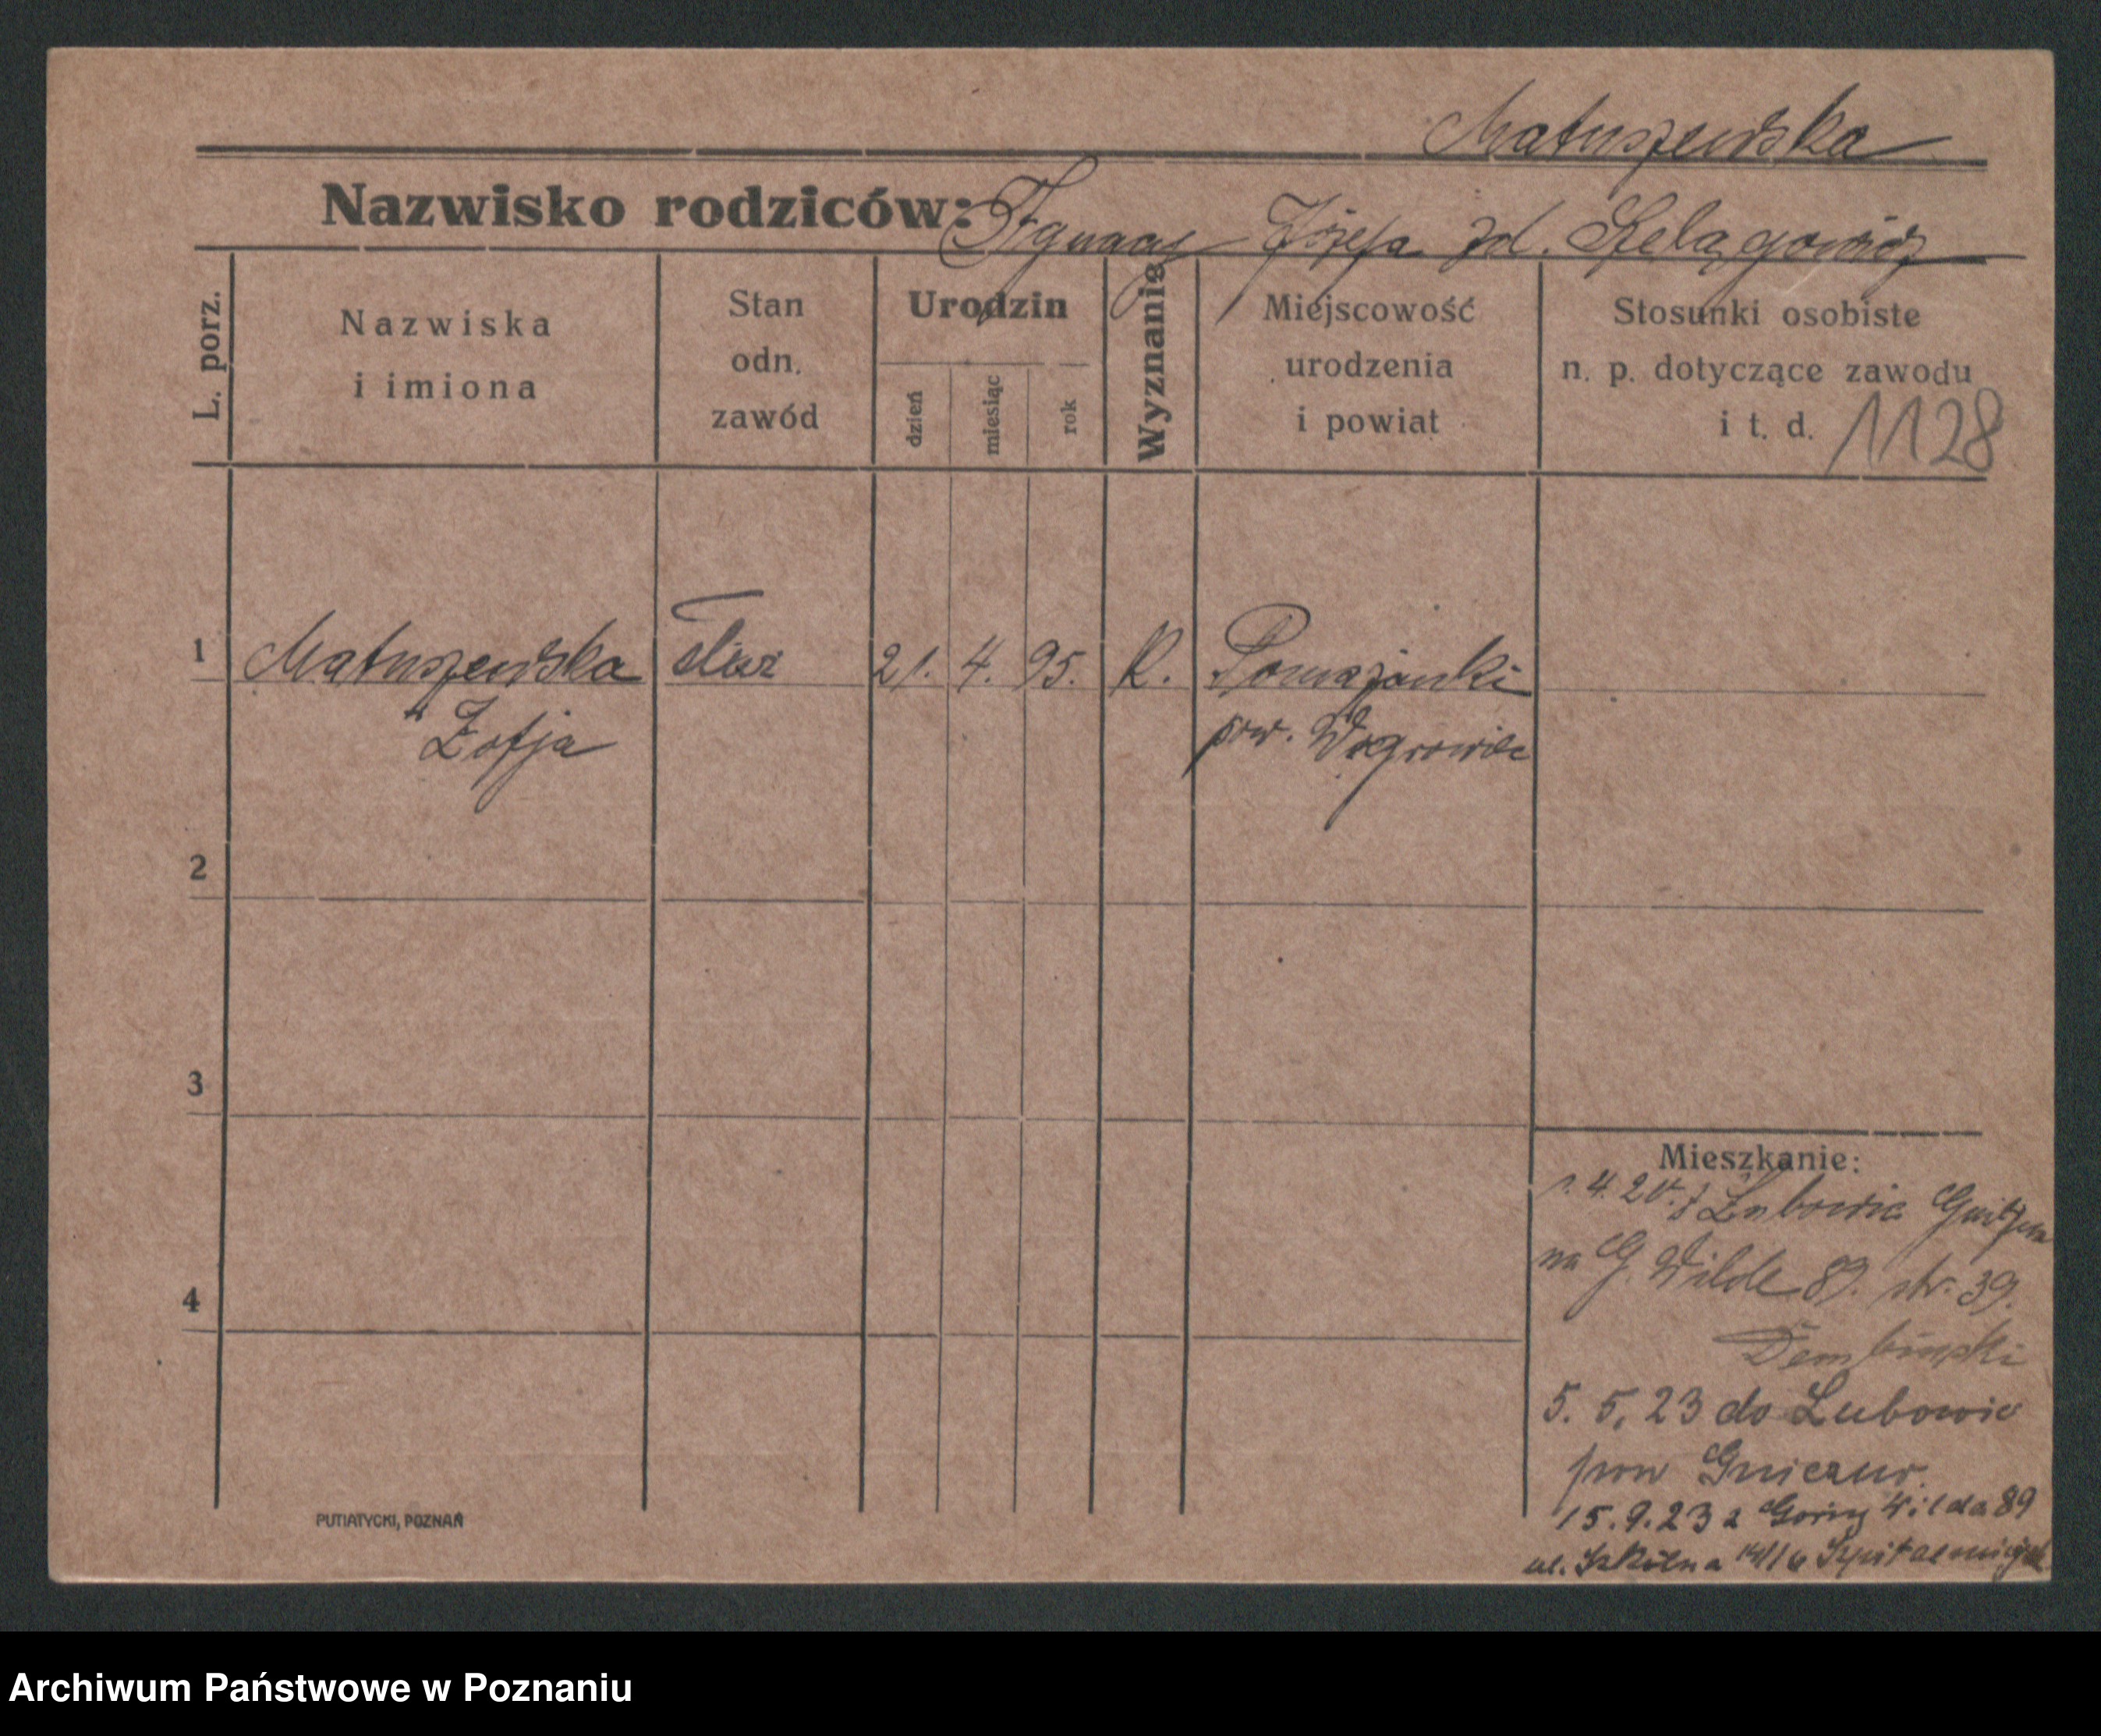 Matuszewska
Nazwisko rodziców: Ignacy Józefa zd. Szelągowicz
L. porz.
Nazwiska
i imiona
Stan
odn.
zawód
Urodzin
dzień
miesiąc
rok
Wyznanie
Miejscowość
urodzenia
i powiat
Stosunki osobiste
n. p. dotyczące zawodu
i t. d. 1128
1 Matuszewska 21. 4. 95. K. Pomarzanki
Zofja pow. Wągrowiec
2
3
4
Mieszkanie:
4. 20. z Łubowic
na G. Wilde 89. str. 39.
Dembinski
5. 5. 23 do Lubowic
pow Gniezno.
15. 9. 23 z Górny Wilda 89
ul. Szkolna
PUTIATYCKI, POZNAŃ
Archiwum Państwowe w Poznaniu